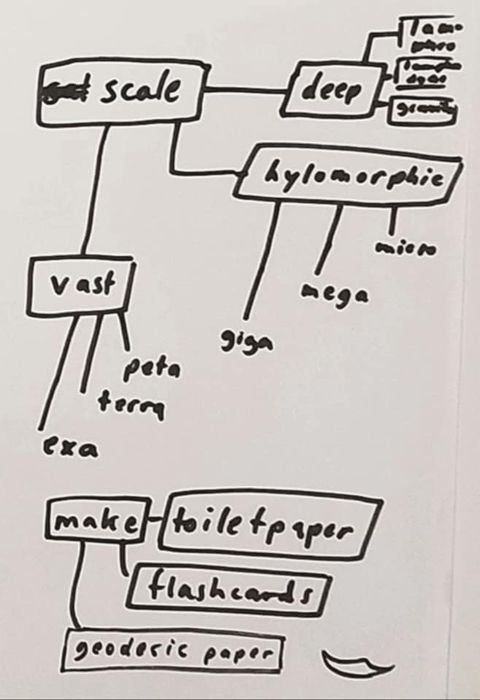 scale
deep
hylomorphic
micro
mega
giga
vast
peta
terra
exa
make
toiletpaper
flashcards
geoderic paper